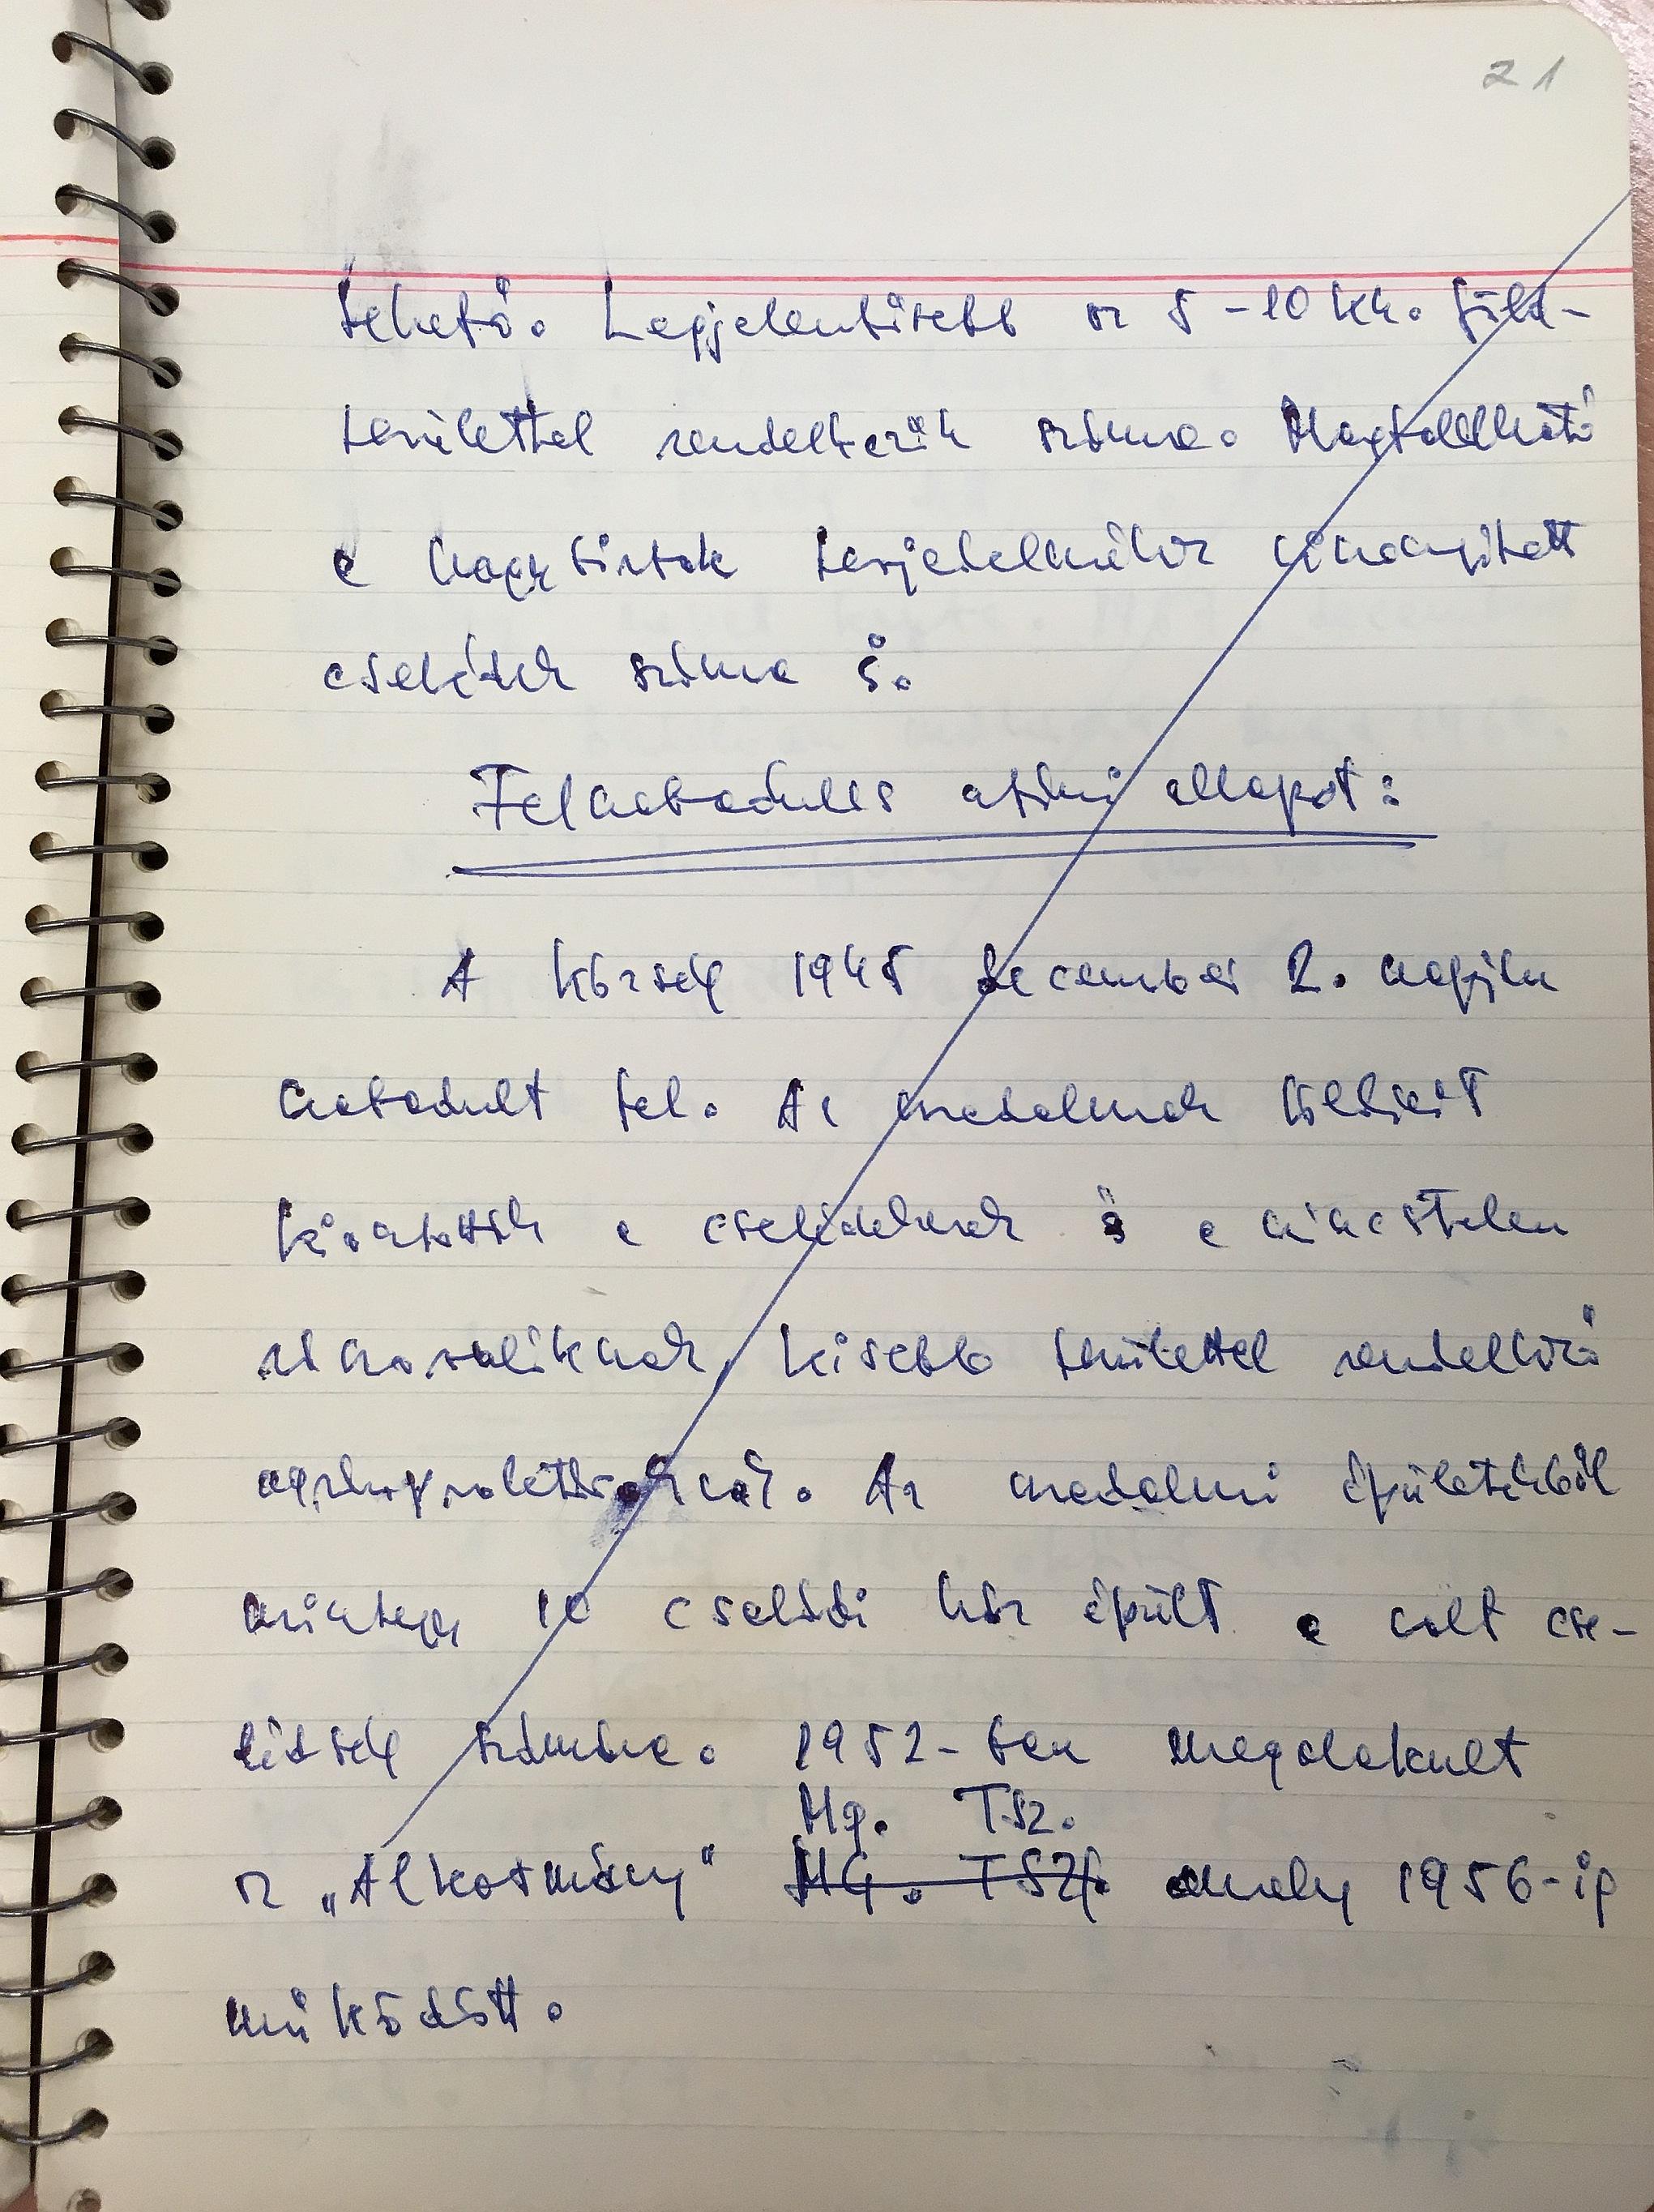 21
tehető. Legjelentősebb az 5-10 kh. föld-
területtel rendelkezők száma. Megtalálható
a nagybirtok terjedelméhez viszonyított
cselédek száma is.
Felszabadulás utáni állapot:
A község 1945 december 2. napján
szabadult fel. Az uradalmak földjeit
kiosztották a cselédeknek és a nincstelen
zsákosok, kisebb területtel rendelkező
agrárproletároknak. Az uradalmi épületekből
mintegy 10 cselédi ház épült a volt cse-
lédség számára. 1952-ben megalakult
Mg. TSz.
az „Alkotmány" MG. TSZ. amely 1956-ig
működött.